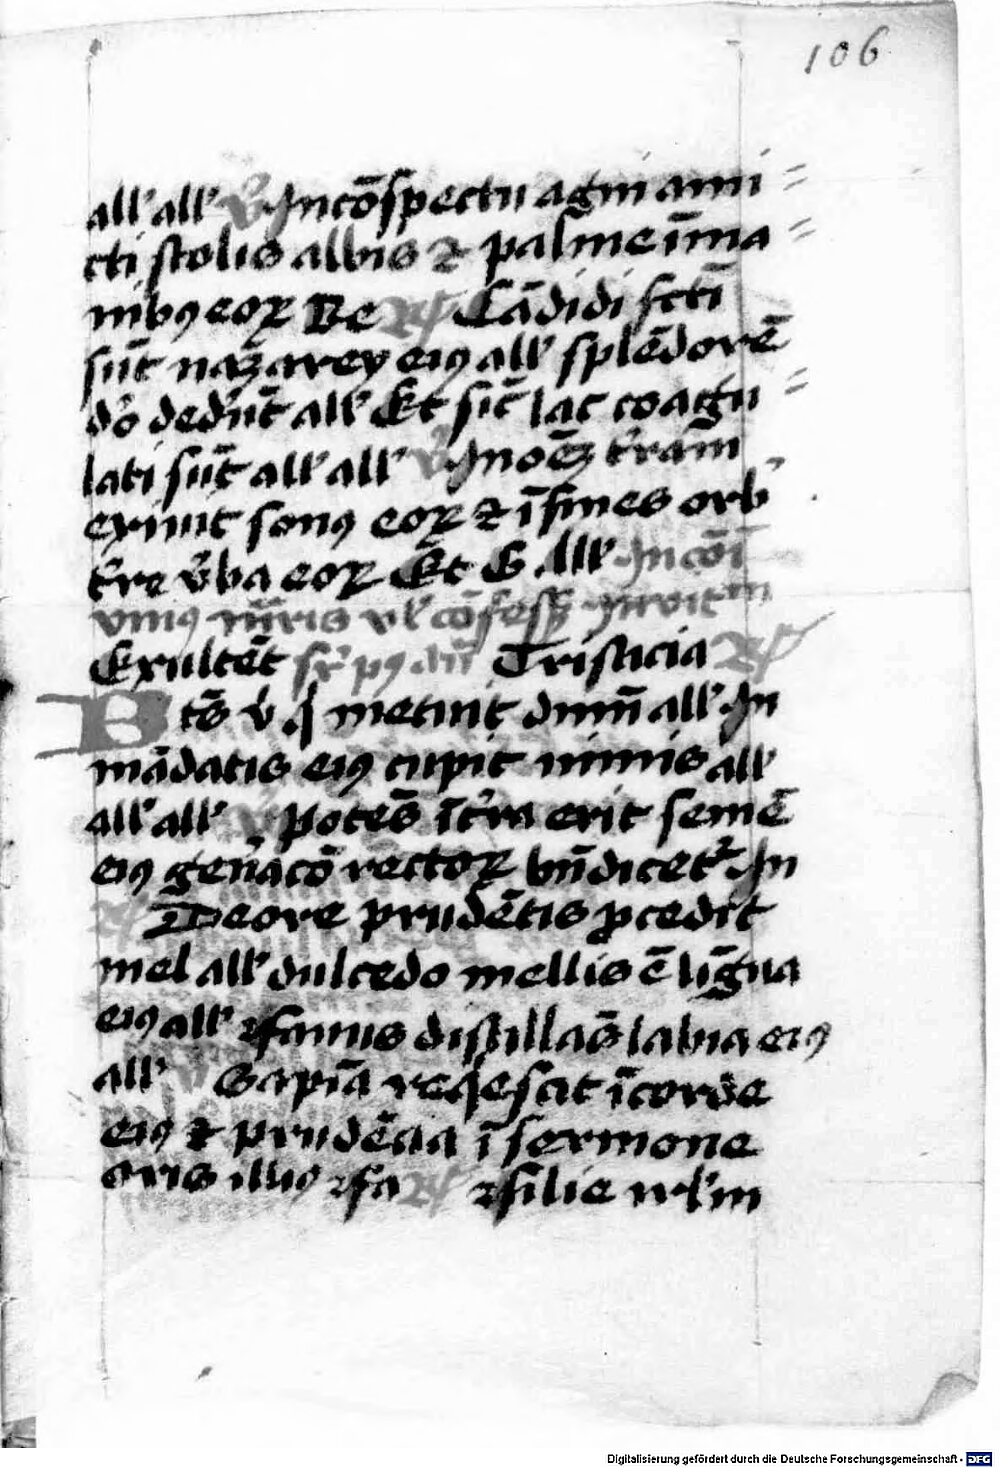 106
all' all' V̄ In cōspectu agni ami=
cti stolis albis ⁊ palme ī ma=
nibꝰ eoꝝ Be R̸ Cādidi fcti
sūt nazarey eiꝰ all' splēdorē
d'o ded'ūt all' Et sīc lac coagu=
lati sūt all' all' V̄ In oēꝫ t'rām
exiuit sonꝰ eoꝝ ⁊ ī fines orb'
t're v'ba eoꝝ Et G All' In cōī
vniꝰ mr̄is vl' cōfess Inuit
Exultēt Tristicia R̸
Btūs v q metuit dnm̄ all' In
mādatis eiꝰ cupit nimis all'
all' all' V̄ Potēs ī t'ra erit semē
eiꝰ gen'acō rectoꝝ bn̄dicet' In
R̸ De ore prudētis ꝓcedit
mel all' dulcedo mellis ē līgua
eiꝰ all' ffauus distillās labia eiꝰ
all' V̄ Sapīa reqescit ī corde
eiꝰ ⁊ prudēcia ī sermone
oris illiꝰ ffa R̸ ffilie irl'm
Digitalisierung gefördert durch die Deutsche Forschungsgemeinschaft - DFG